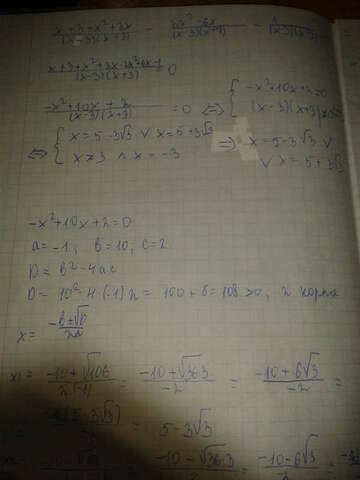 x+3+x²+3x / (x-3)(x+3) - 2x²-6x / (x-3)(x+3) - 1 / (x-3)(x+3)
x+3+x²+3x-2x²+6x-1 / (x-3)(x+3) = 0
-x²+10x+2 / (x-3)(x+3) = 0 ⇔ { -x²+10x+2=0
(x-3)(x+3)≠0
⇔ { x=5-3√3 ∨ x=5+3√3 ⇒ x=5-3√3 ∨
x≠3 ∧ x=-3 ∨ x=5+3√3
-x²+10x+2=0
a=-1; b=10, c=2
D= b²-4ac
D= 10²-4·(-1)·2= 100+8=108>0, 2 корня
x= -b±√D / 2a
x₁= -10+√108 / 2·(-1) = -10+√36·3 / -2 = -10+6√3 / -2 =
= 5-3√3
-10-√36·3 = -10-6√3